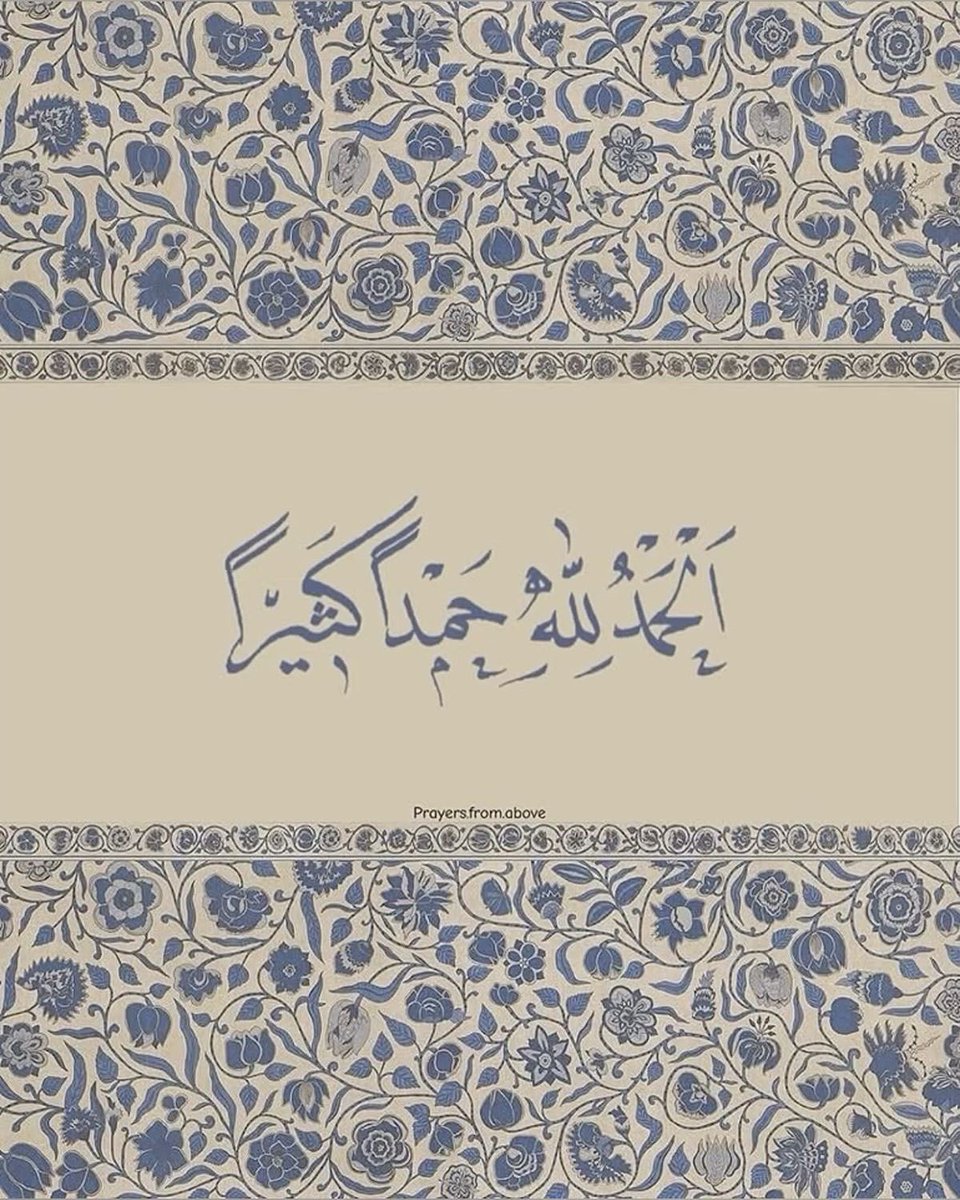 اَلْحَمْدُ لِلّٰهِ حَمْدًا كَثِيرًا
Prayers.from.above